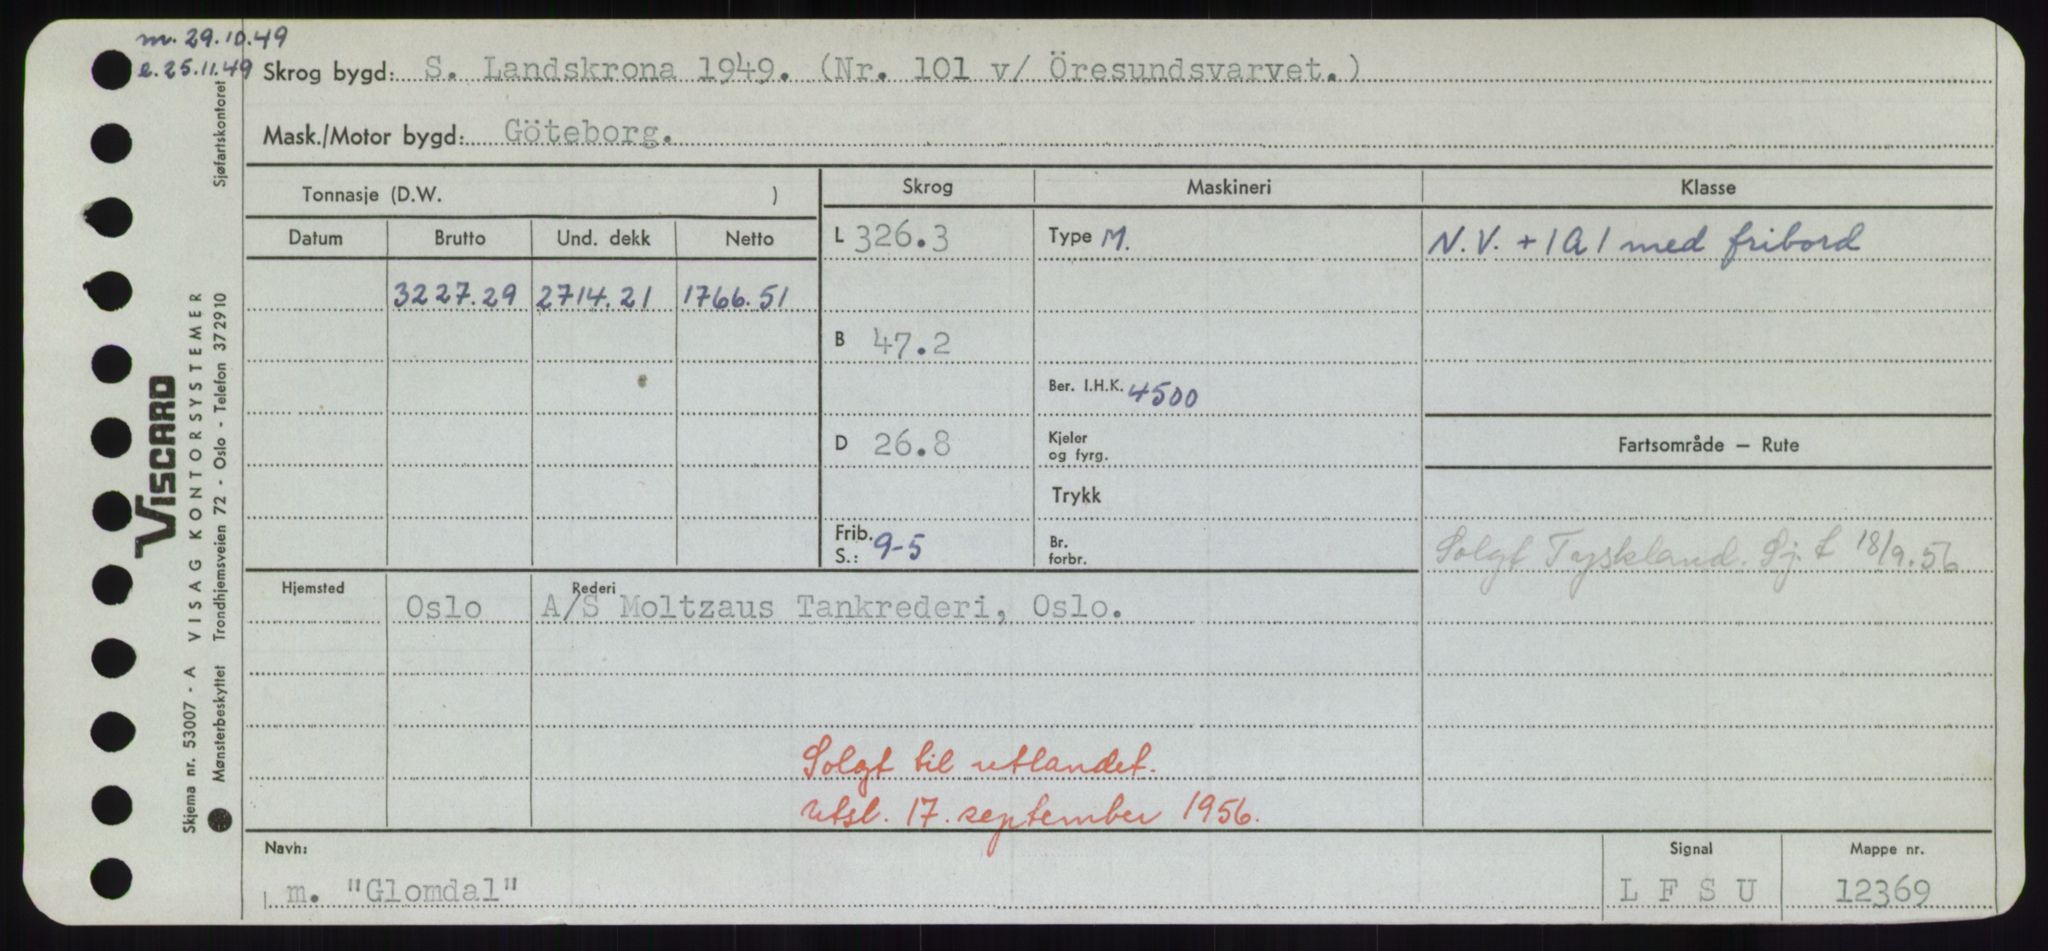 m. 29.10.49
e. 25.11.49
Skrog bygd: S. Landskrona 1949. (Nr. 101 v/ Öresundsvarvet.)
Mask./Motor bygd: Göteborg.
Tonnasje (D.W. )
Skrog Maskineri Klasse
Datum Brutto Und. dekk Netto
L 326.3 Type M. N.V. + 1A1 med fribord
3227.29 2714.21 1766.51
B 47.2
Ber. I.H.K. 4500
D 26.8 Kjeler og fyrg.
Fartsområde — Rute
Trykk
Frib. S.: 9-5 Br. forbr.
Solgt Tyskland. Sj. t 18/9.56
Hjemsted Rederi
Oslo A/S Moltzaus Tankrederi, Oslo.
Solgt til utlandet.
utsl. 17. september 1956.
Navn: Signal Mappe nr.
m. "Glomdal" L F S U 12369
VISCARD
Skjema nr. 53007 - A VISAG KONTORSYSTEMER
Mønsterbeskyttet Trondhjemsveien 72 - Oslo - Telefon 372910 Sjøfartskontoret